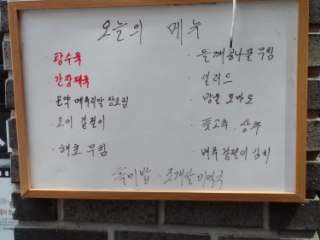 오늘의 메뉴
탕수육
간장제육
곤약 메추리알 장조림
오이 겉절이
해초 무침
들깨콩나물 무침
샐러드
방울 토마토
풋고추 . 상추
배추 겉절이 김치
흑미밥 . 조개살 미역국